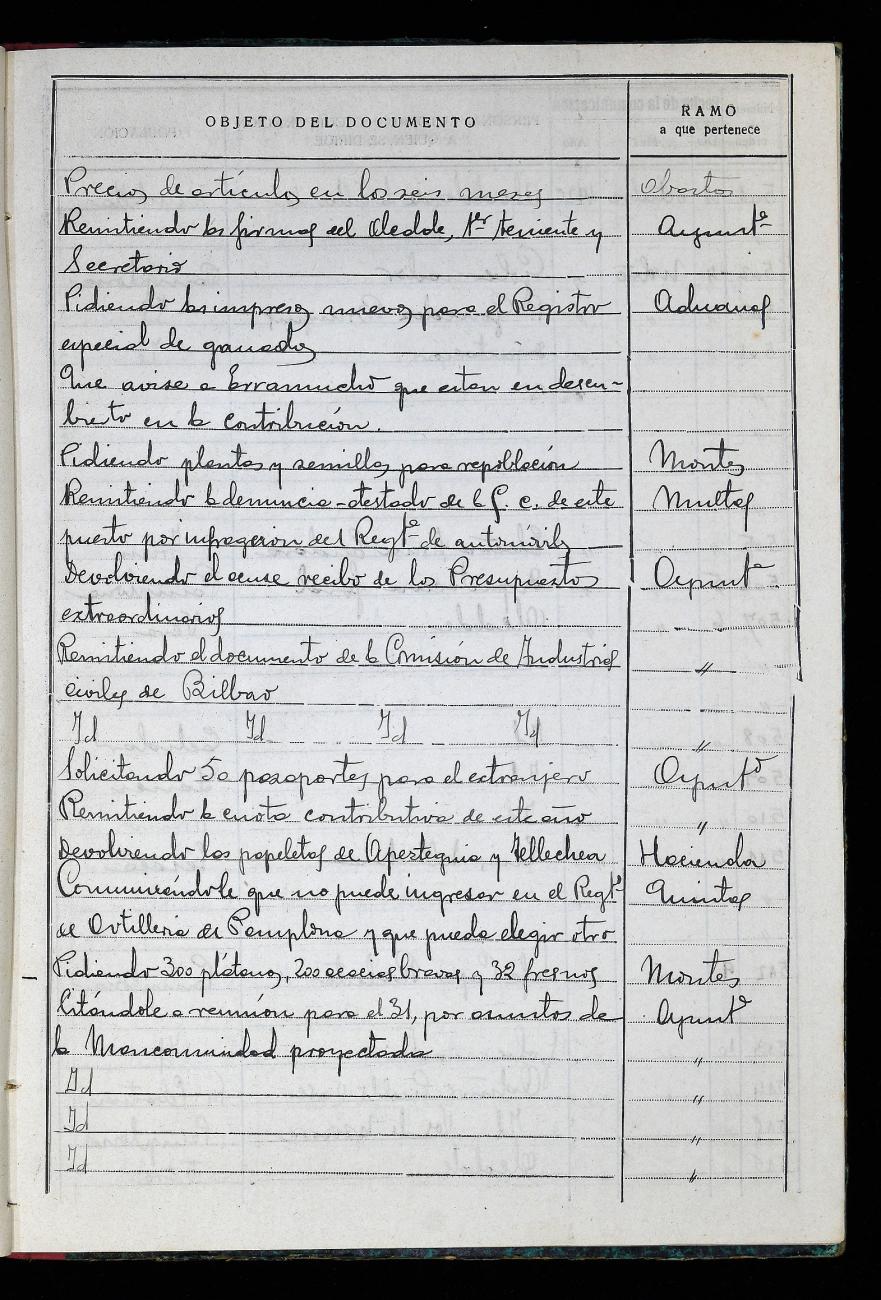 OBJETO DEL DOCUMENTO
RAMO
a que pertenece
Precios de artículos en los seis meses Abastos
Remitiendo las firmas del Alcalde, 1er teniente y Ayuntº
Secretario
Pidiendo los impresos nuevos para el Registro Aduanas
especial de ganados
Que avise a Erramucho que estan en descu-
bierto en la contribución.
Pidiendo plantas y semillas para repoblación Montes
Remitiendo la denuncia-atestado de la g. c. de este Multas
puesto por infracción del Reglº de automóviles
Devolviendo el acuse recibo de los Presupuestos Ayuntº
extraordinarios
Remitiendo el documento de la Comisión de Industrias "
civiles de Bilbao
Id Id Id Id "
Solicitando 50 pasaportes para el extranjero Ayuntº
Remitiendo la cuota contributiva de este año "
Devolviendo las papeletas de Apezteguia y Tellechea Hacienda
Comunicándole que no puede ingresar en el Regtº Quintas
de Artilleria de Pamplona y que pueda elegir otro
Pidiendo 300 plátanos, 200 acacias bravas y 32 fresnos Montes
Citándole a reunión para el 31, por asuntos de Ayuntº
la Mancomunidad proyectada "
Id "
Id "
Id "